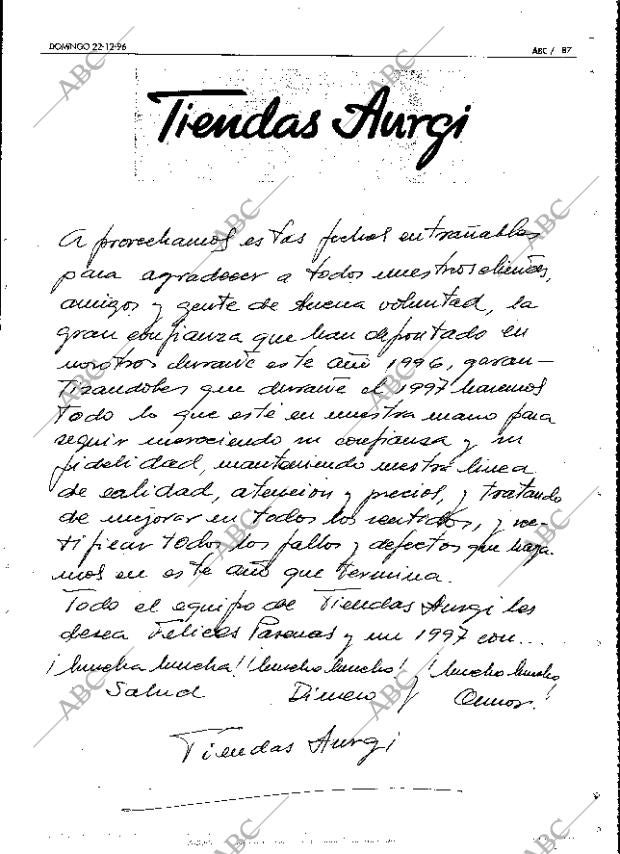 DOMINGO 22-12-96
ABC / 87
Tiendas Aurgi
Aprovechamos estas fechas entrañables
para agradecer a todos nuestros clientes,
amigos y gente de buena voluntad, la
gran confianza que han depositado en
nosotros durante este año 1996, garan-
tizandoles que durante el 1997 haremos
todo lo que esté en nuestra mano para
seguir mereciendo su confianza y su
fidelidad, manteniendo nuestra linea
de calidad, atencion y precios, y tratando
de mejorar en todos los sentidos, y rec-
tificar todos los fallos y defectos que haya
mos en este año que termina.
Todo el equipo de Tiendas Aurgi les
desea Felices Pascuas y un 1997 con...
¡mucha mucha! ¡mucho mucho! y ¡mucho mucho,
Salud Dinero y Amor!
Tiendas Aurgi